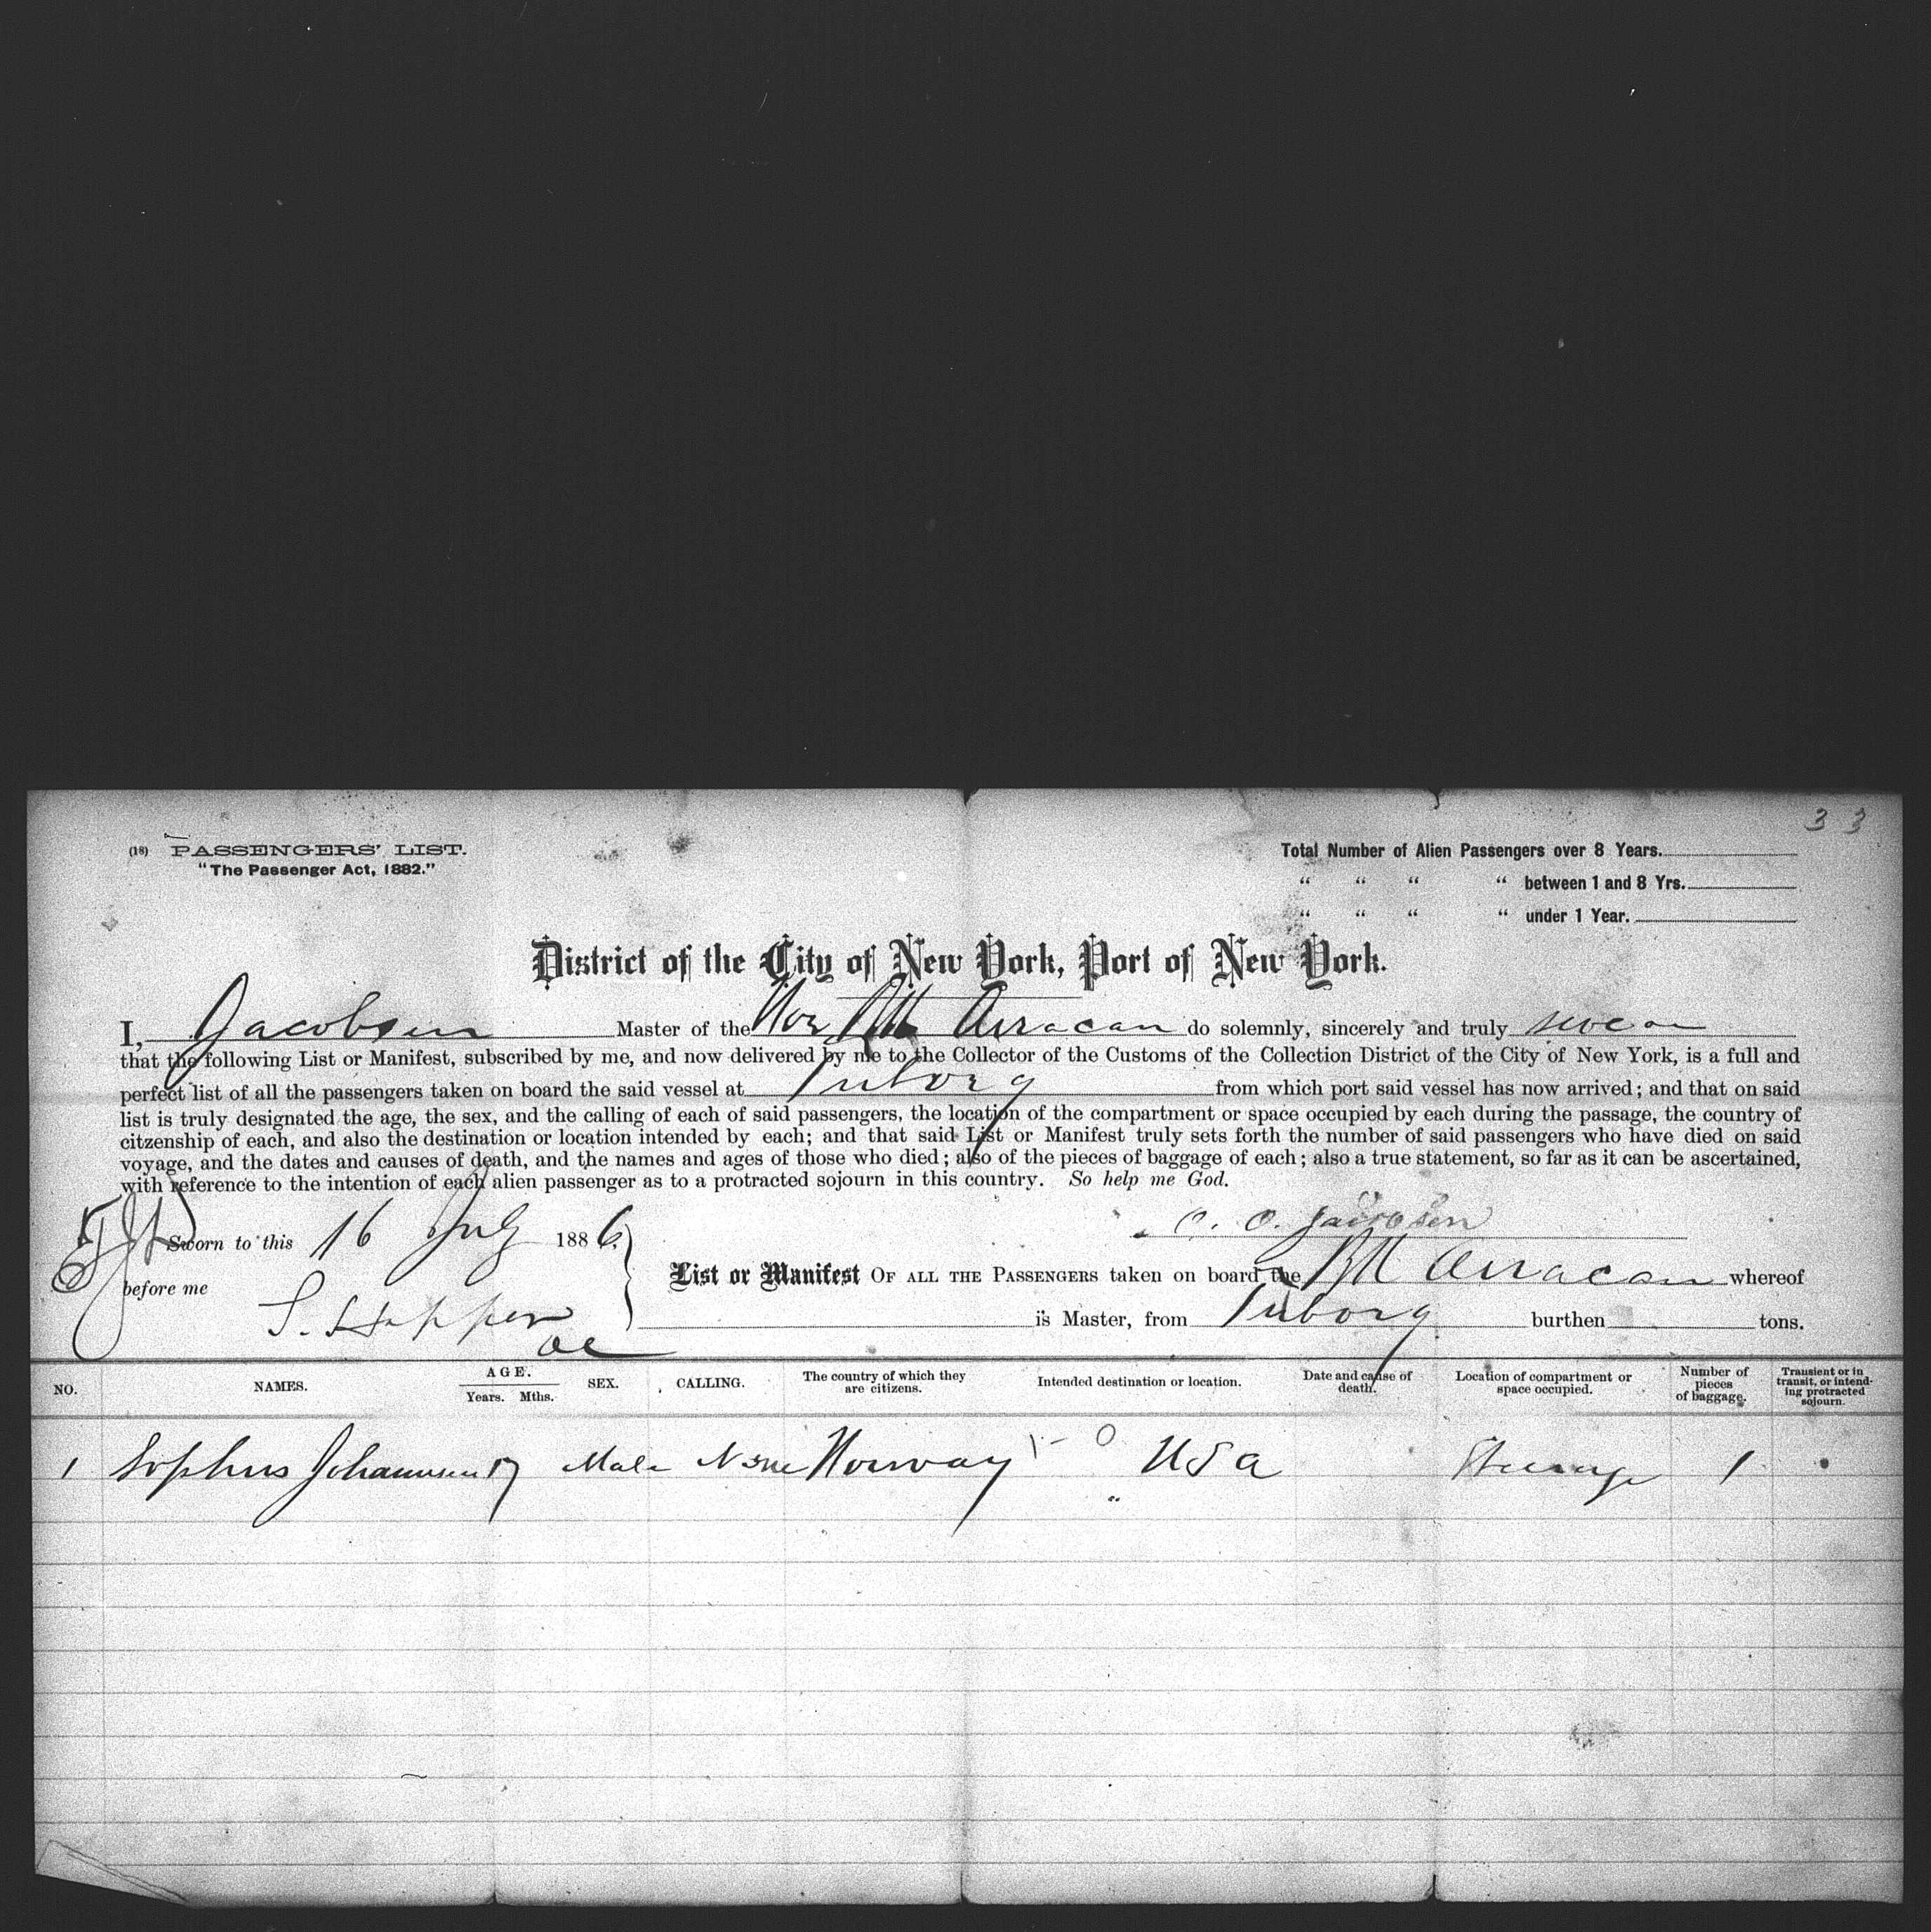 33
(18) PASSENGERS' LIST.
"The Passenger Act, 1882."
Total Number of Alien Passengers over 8 Years.
" " " " between 1 and 8 Yrs.
" " " " under 1 Year.
District of the City of New York, Port of New York.
I, Jacobsen Master of the Nor Bk Arracan do solemnly, sincerely and truly swear
that the following List or Manifest, subscribed by me, and now delivered by me to the Collector of the Customs of the Collection District of the City of New York, is a full and
perfect list of all the passengers taken on board the said vessel at from which port said vessel has now arrived; and that on said
list is truly designated the age, the sex, and the calling of each of said passengers, the location of the compartment or space occupied by each during the passage, the country of
citzenship of each, and also the destination or location intended by each; and that said List or Manifest truly sets forth the number of said passengers who have died on said
voyage, and the dates and causes of death, and the names and ages of those who died; also of the pieces of baggage of each; also a true statement, so far as it can be ascertained,
with reference to the intention of each alien passenger as to a protracted sojourn in this country. So help me God.
O. O. Jacobsen
Sworn to this 16 July 1886
before me
List or Manifest OF ALL THE PASSENGERS taken on board the Bk Arracan whereof
is Master, from burthen tons.
NO. NAMES. AGE. Years. Mths. SEX. CALLING. The country of which they are citizens. Intended destination or location. Date and cause of death. Location of compartment or space occupied. Number of pieces of baggage. Transient or in transit, or intending protracted sojourn.
1 Sophus Johannsen 17 Male None Norway USA Steerage 1